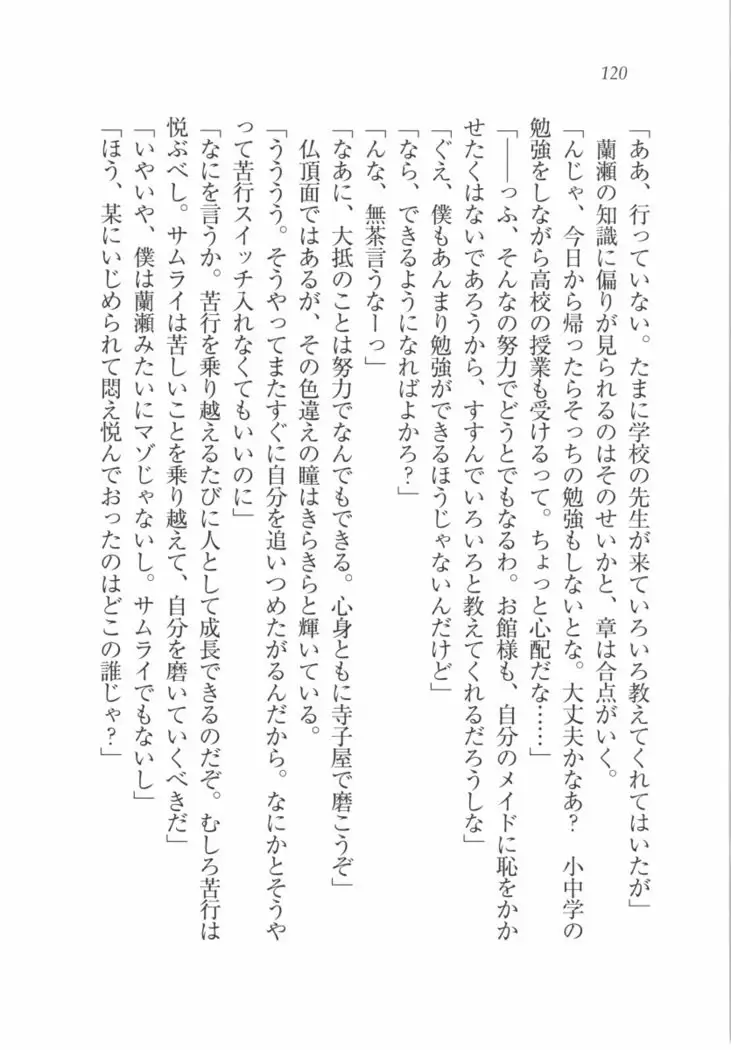 120
「ああ、行っていない。たまに学校の先生が来ていろいろ教えてくれてはいたが」
　蘭瀬の知識に偏りが見られるのはそのせいかと、章は合点がいく。
「んじゃ、今日から帰ったらそっちの勉強もしないとな。大丈夫かなあ？　小中学の
勉強をしながら高校の授業も受けるって。ちょっと心配だな……」
「――っふ、そんなの努力でどうとでもなるわ。お館様も、自分のメイドに恥をかか
せたくはないであろうから、すすんでいろいろと教えてくれるだろうしな」
「ぐえ、僕もあんまり勉強ができるほうじゃないんだけど」
「なら、できるようになればよかろ？」
「んな、無茶言うなーっ」
「なあに、大抵のことは努力でなんでもできる。心身ともに寺子屋で磨こうぞ」
　仏頂面ではあるが、その色違えの瞳はきらきらと輝いている。
「うううう。そうやってまたすぐに自分を追いつめたがるんだから。なにかとそうや
って苦行スイッチ入れなくてもいいのに」
「なにを言うか。苦行を乗り越えるたびに人として成長できるのだぞ。むしろ苦行は
悦ぶべし。サムライは苦しいことを乗り越えて、自分を磨いていくべきだ」
「いやいや、僕は蘭瀬みたいにマゾじゃないし。サムライでもないし」
「ほう、某にいじめられて悶え悦んでおったのはどこの誰じゃ？」